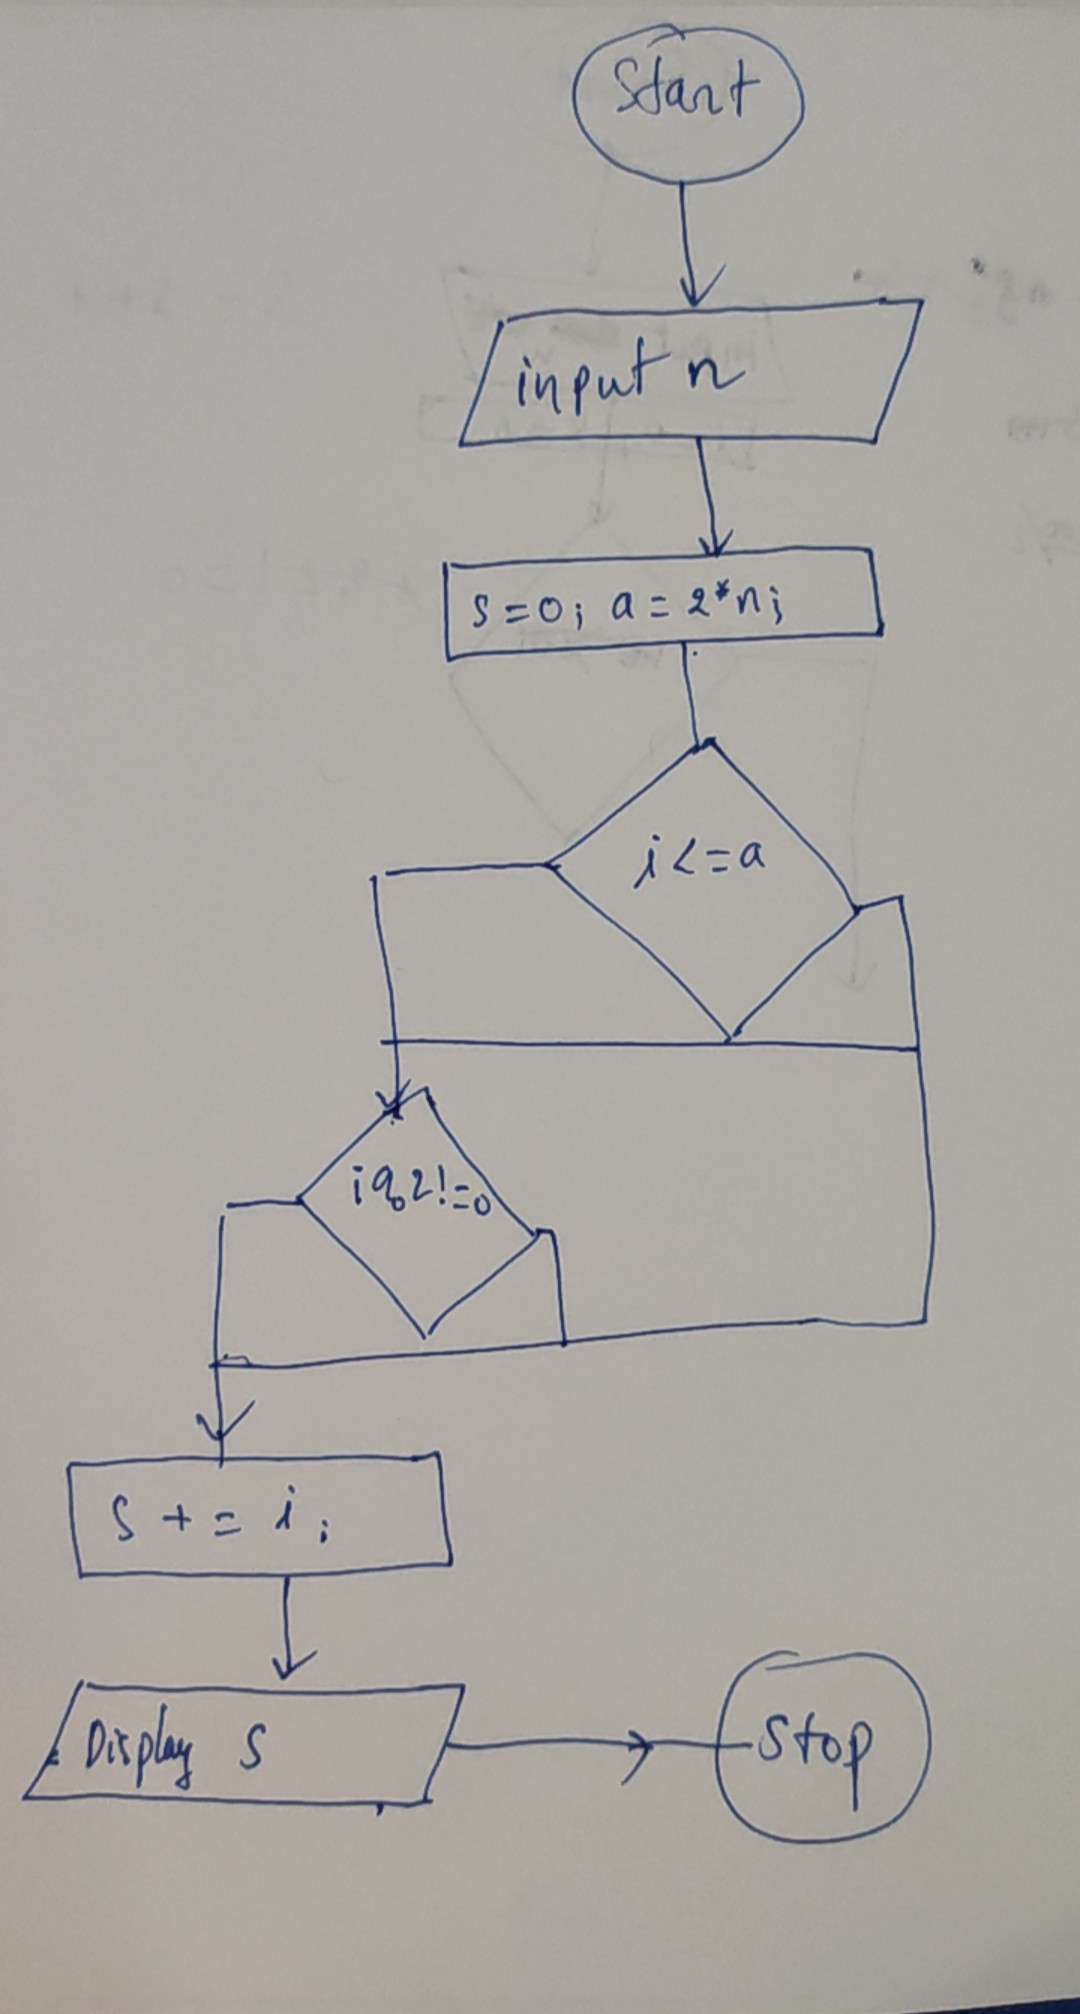 Start
input n
s=0; a=2*n;
i<=a
i%2!=0
S += i;
Display S
Stop